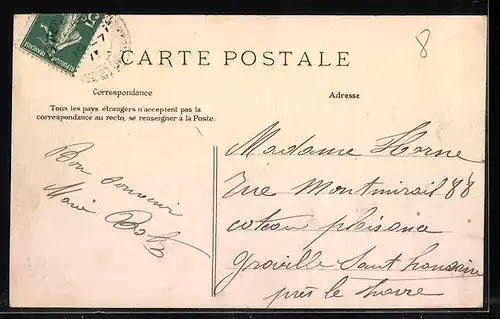 8
RÉPUBLIQUE FRANÇAISE
CARTE POSTALE
Correspondance
Tous les pays étrangers n'acceptent pas la
correspondance au recto, se renseigner à la Poste.
Adresse
Bon souvenir
Marie
Madame Horne
rue Montmirail 88
coteau plaisance
Graville Saint honorine
près le havre